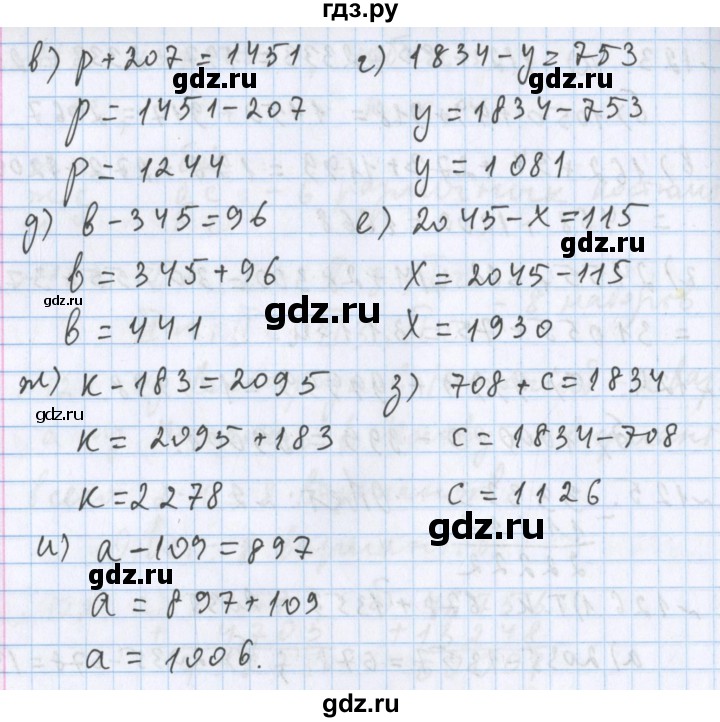 гдз.ру
в) p + 207 = 1451 г) 1834 - y = 753
gdz.ru gdz.ru
p = 1451 - 207 y = 1834 - 753
p = 1244 y = 1081
д) в - 345 = 96 е) 2045 - x = 115
в = 345 + 96 x = 2045 - 115
gdz.ru gdz.ru
в = 441 x = 1930
ж) к - 183 = 2095 з) 708 + c = 1834
gdz.ru
к = 2095 + 183 c = 1834 - 708
к = 2278 c = 1126
gdz.ru
и) a - 109 = 897
gdz.ru
a = 897 + 109
a = 1006.
gdz.ru